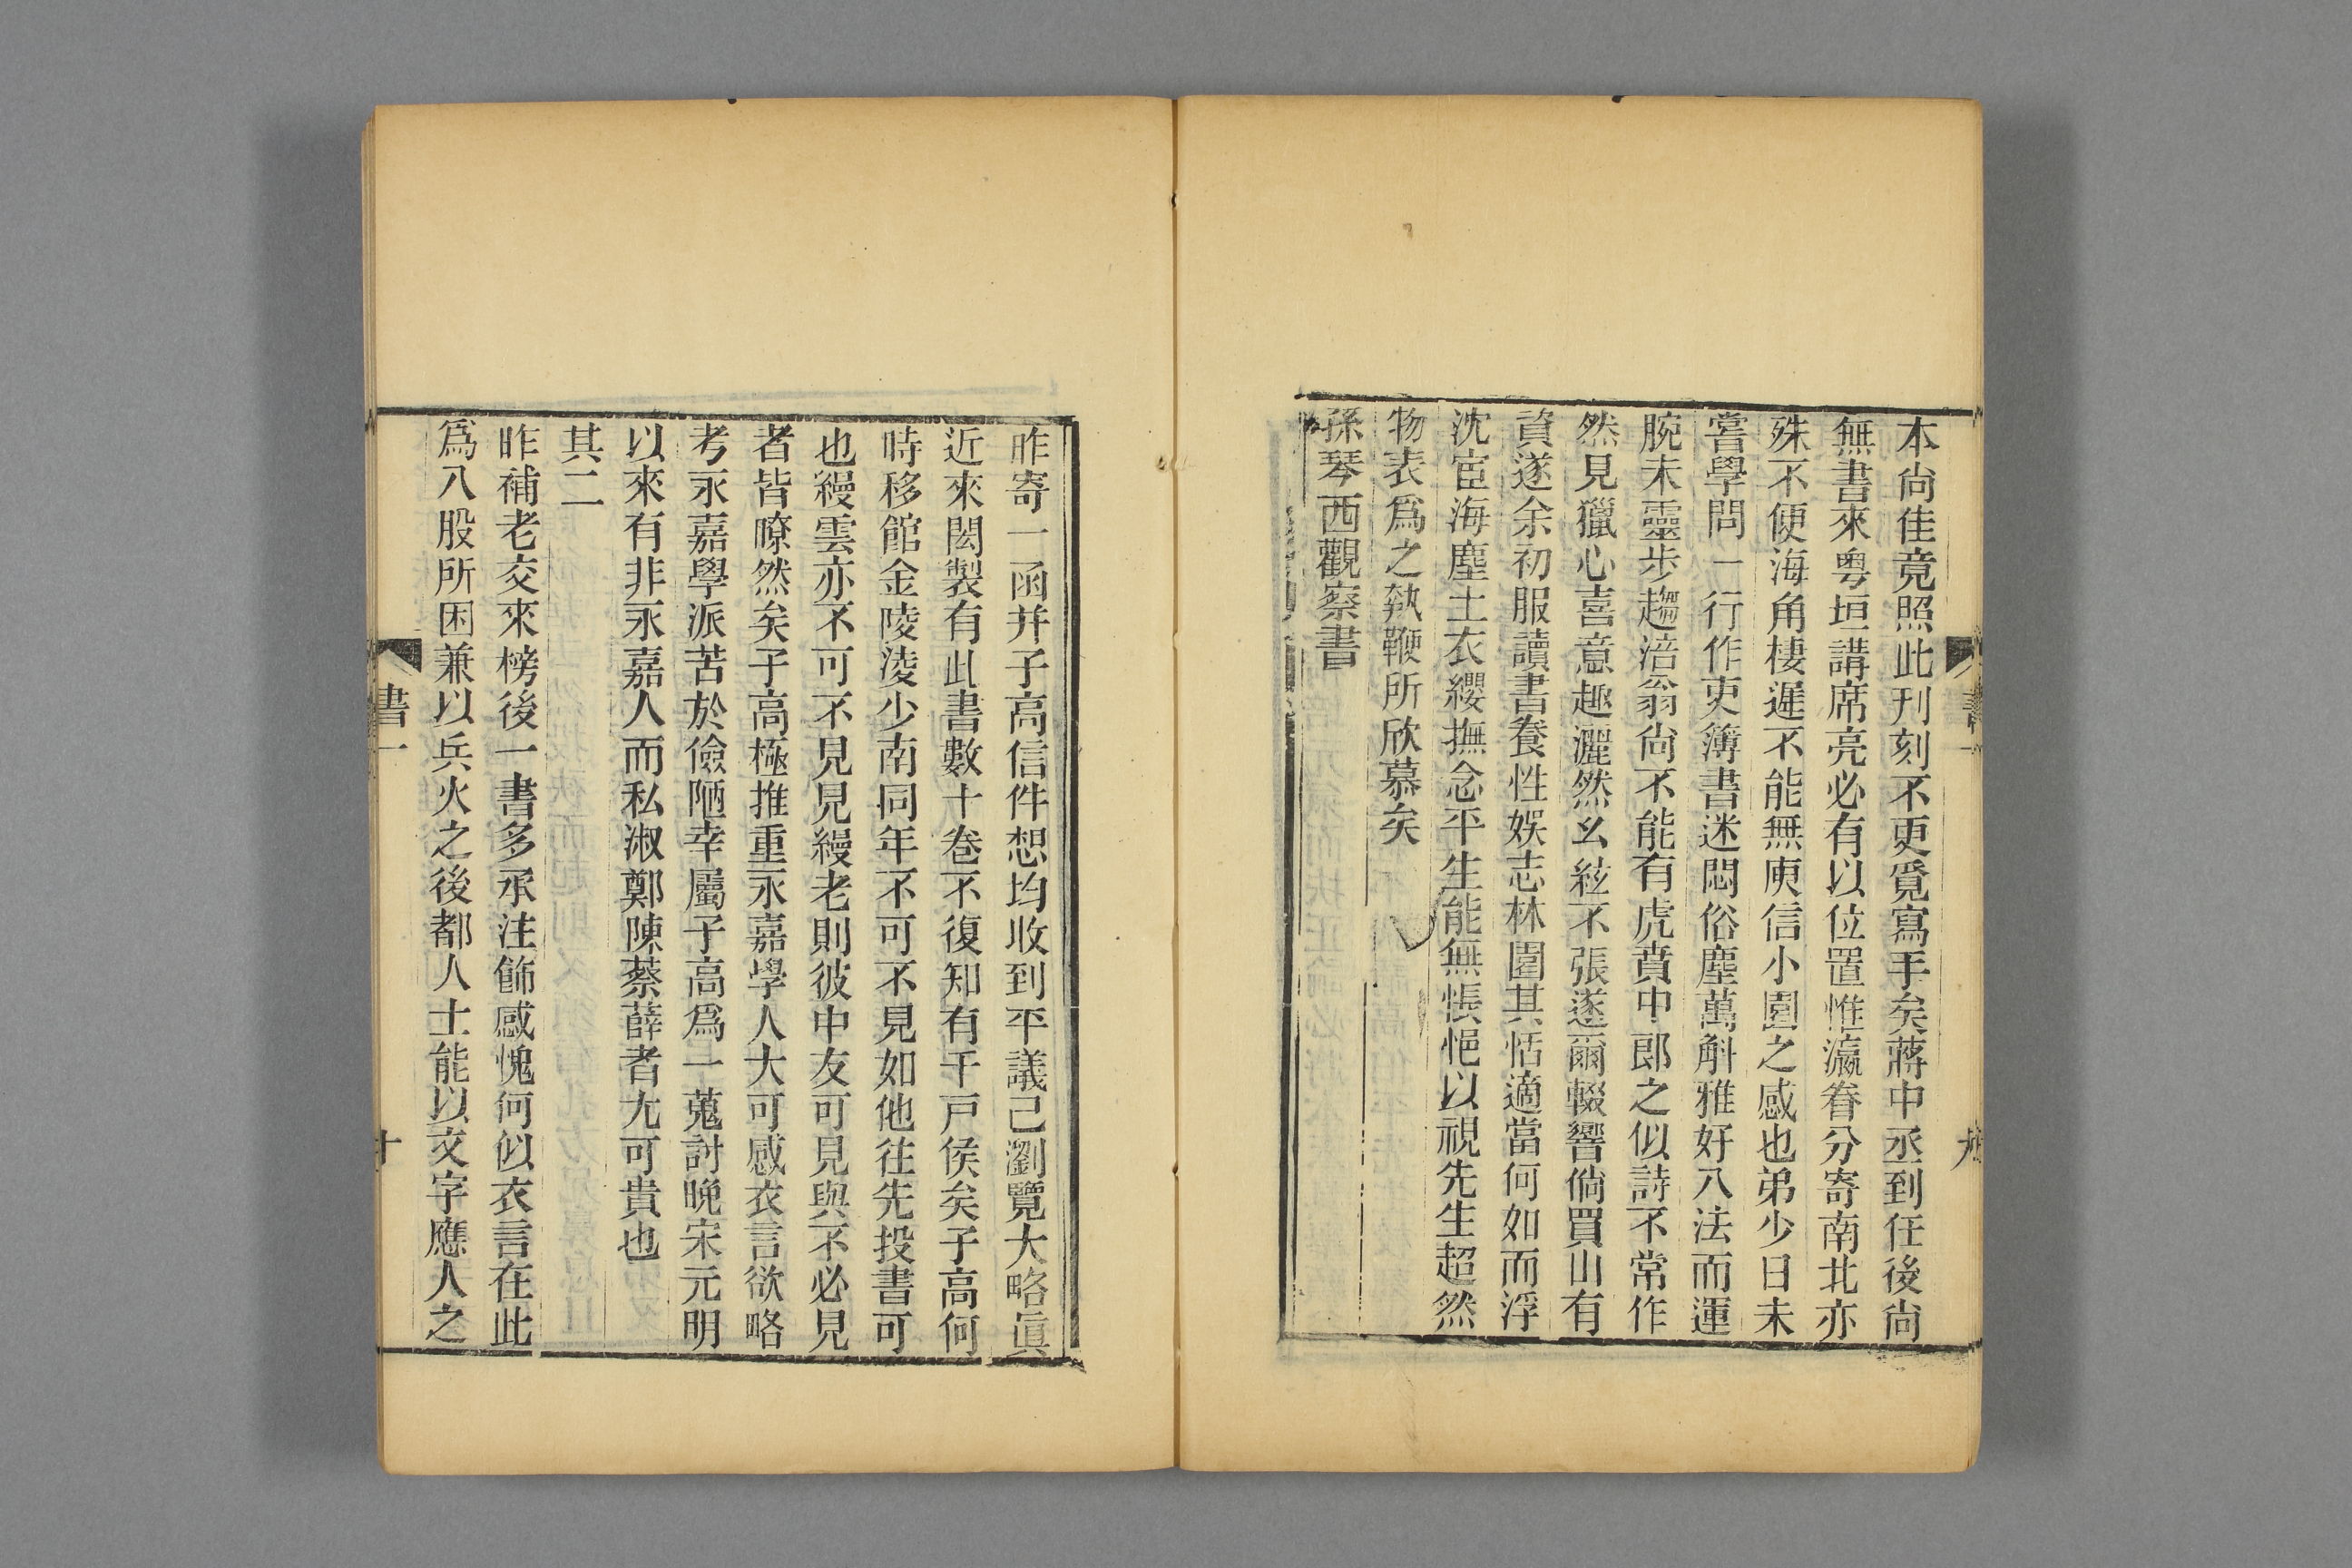 本尙佳竟照此刊刻不更覓寫手矣蔣中丞到任後尙
無書來粵垣講席亮必有以位置惟瀛眷分寄南北亦
殊不便海角棲遲不能無庾信小園之感也弟少日未
嘗學問一行作吏簿書迷悶俗塵萬斛雅好八法而運
腕未靈步趨涪翁尙不能有虎賁中郎之似詩不常作
然見獵心喜意趣灑然幺絃不張遂爾輟響倘買山有
資遂余初服讀書養性娛志林園其恬適當何如而浮
沈宦海塵土衣纓撫念平生能無悵悒以視先生超然
物表爲之執鞭所欣慕矣
孫琴西觀察書
書一
九
昨寄一函并子高信件想均收到平議己瀏覽大略眞
近來閎製有此書數十卷不復知有千戸侯矣子高何
時移館金陵淩少南同年不可不見如他往先投書可
也縵雲亦不可不見見縵老則彼中友可見與不必見
者皆瞭然矣子高極推重永嘉學人大可感衣言欲略
考永嘉學派苦於儉陋幸屬子高爲一蒐討晚宋元明
以來有非永嘉人而私淑鄭陳蔡薛者尢可貴也
其二
昨補老交來榜後一書多承注飾感愧何似衣言在此
爲八股所困兼以兵火之後都人士能以文字應人之
書一
十